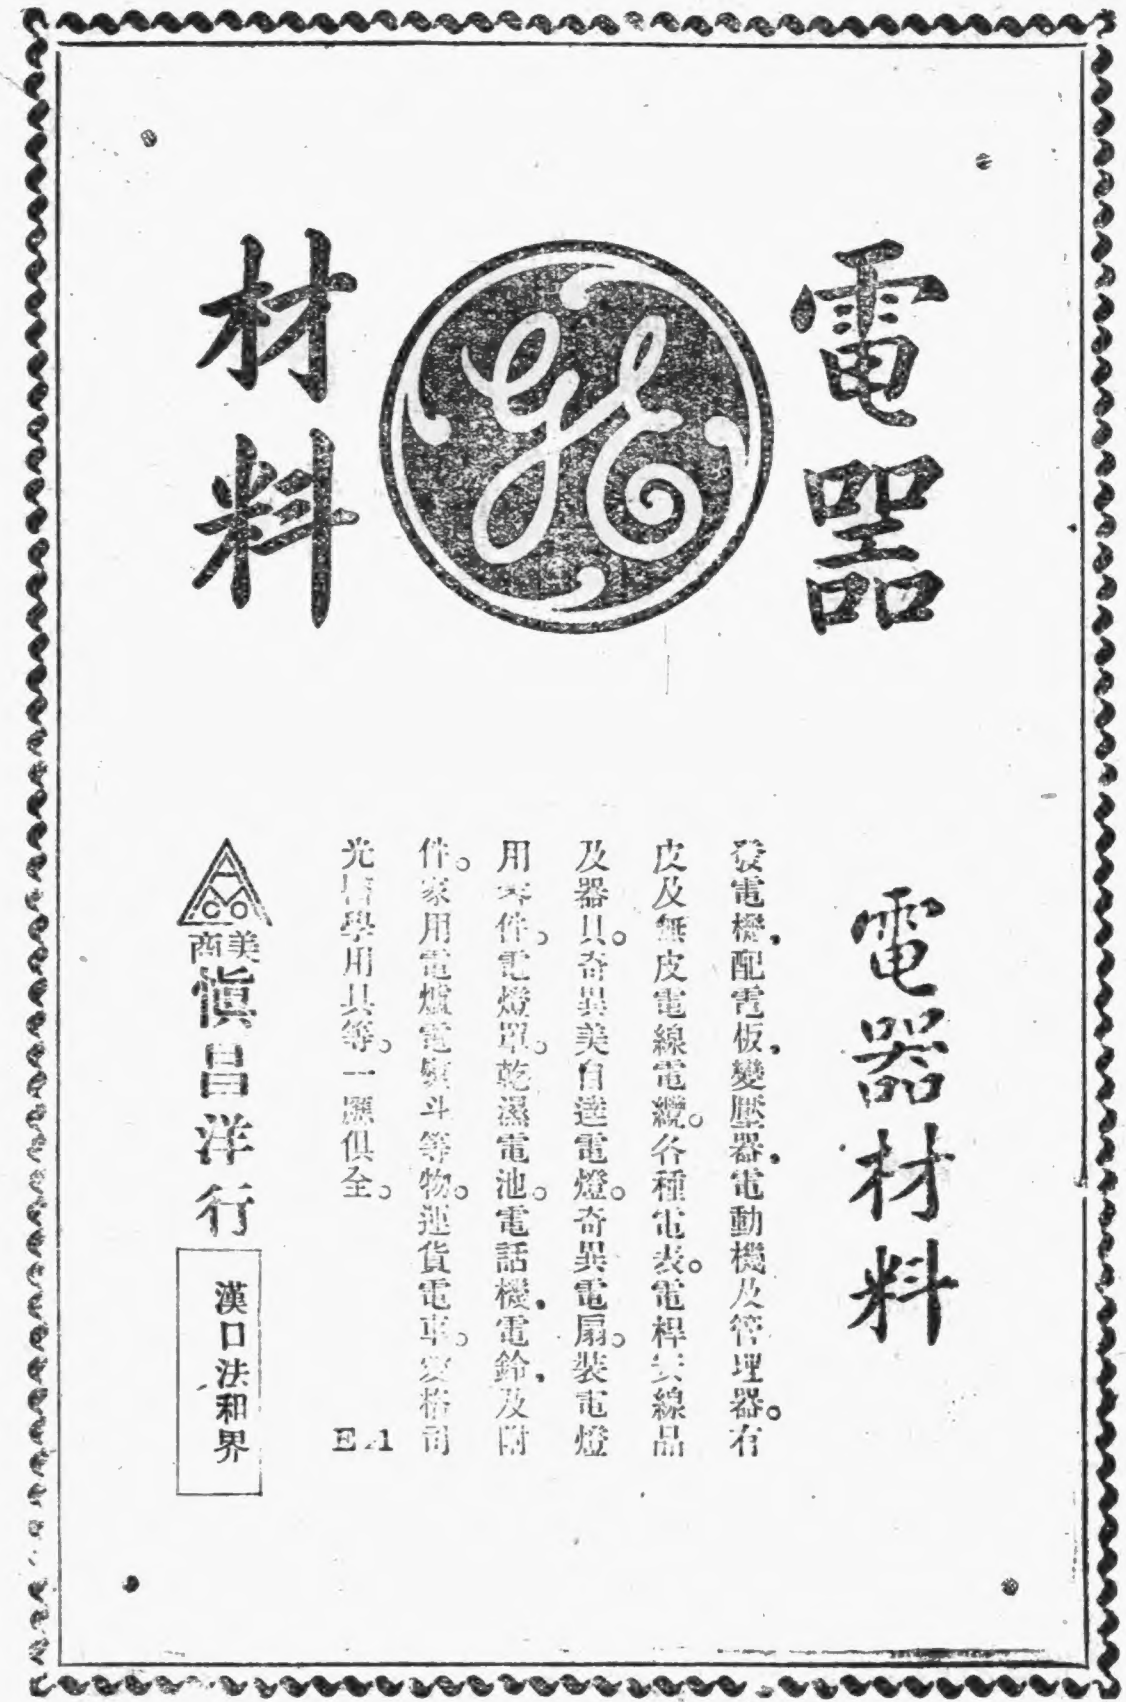 電器
GE
材料
電器材料
發電機，配電板，變壓器，電動機及管理器。有
皮及無皮電線電纜。各種電表。電桿安線品
及器具。奇異美自達電燈。奇異電扇。裝電燈
用零件。電燈罩。乾濕電池。電話機，電鈴，及附
件。家用電爐電熨斗等物。運貨電車。愛格司
光醫學用具等。一匯俱全。
E-1
AMCO
美商
慎昌洋行
漢口法和界